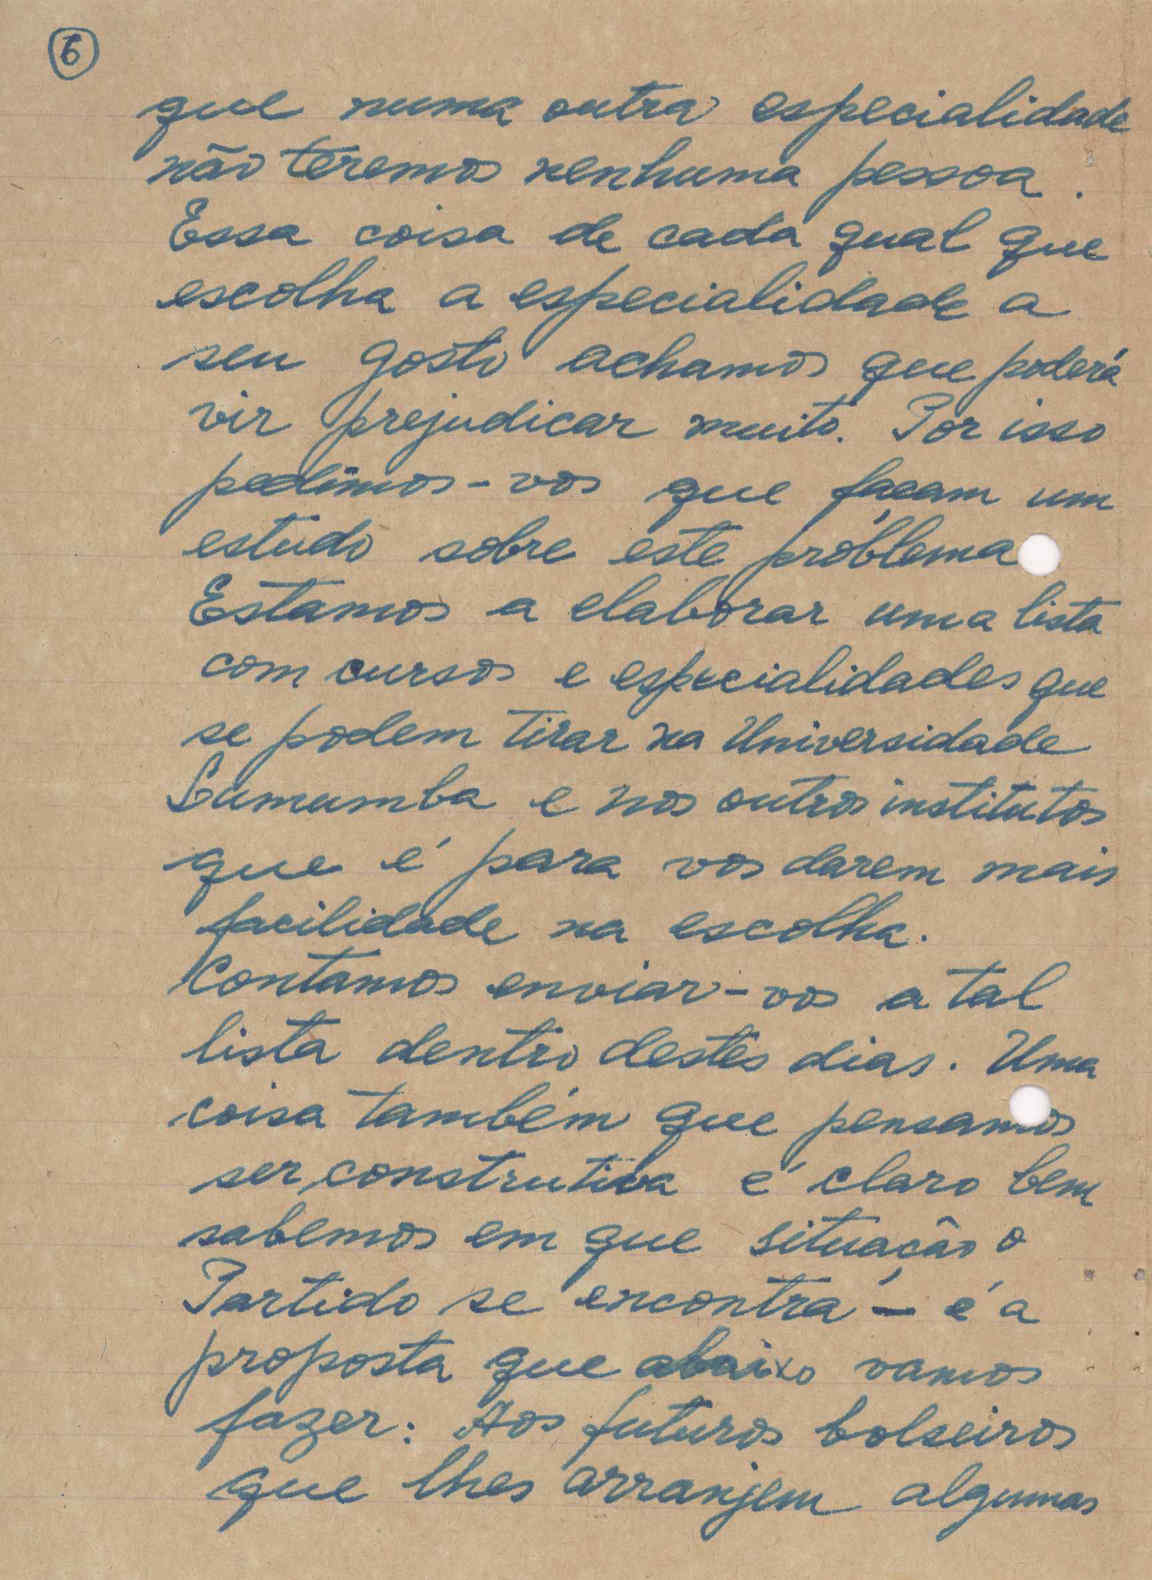 6
que numa outra especialidade
não teremos nenhuma pessoa.
Essa coisa de cada qual que
escolha a especialidade a
seu gosto achamos que poderá
vir prejudicar muito. Por isso
pedimos-vos que façam um
estudo sobre este problema
Estamos a elaborar uma lista
com cursos e especialidades que
se podem tirar na Universidade
Lumumba e nos outros institutos
que é para vos darem mais
facilidade na escolha.
Contamos enviar-vos a tal
lista dentro destes dias. Uma
coisa também que pensamos
ser construtiva é claro bem
sabemos em que situação o
Partido se encontra - é a
proposta que abaixo vamos
fazer: Aos futuros bolseiros
que lhes arranjem algumas